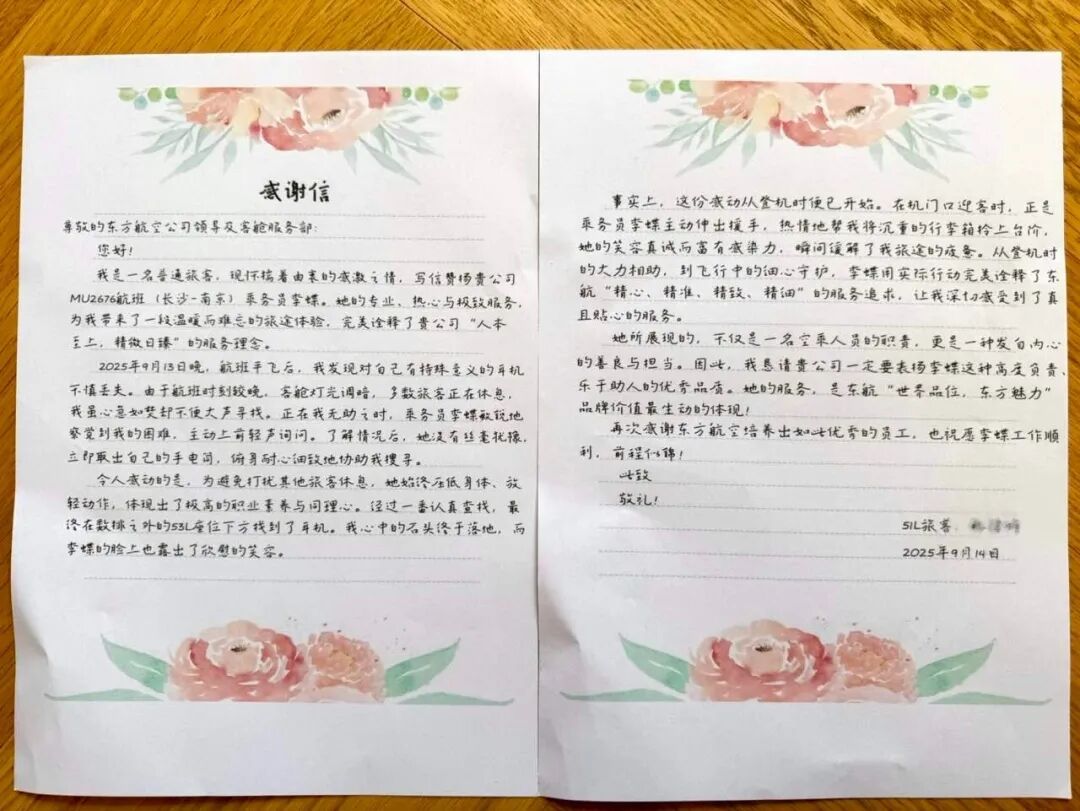 感谢信
尊敬的东方航空公司领导及客舱服务部:
您好!
我是一名普通旅客，现怀揣着由衷的感激之情，写信赞扬贵公司
MU2676航班（长沙-南京）乘务员李蝶。她的专业、热心与极致服务，
为我带来了一段温暖而难忘的旅途体验，完美诠释了贵公司“人本
至上，精微日臻”的服务理念。
2025年9月13日晚，航班平飞后，我发现对自己有特殊意义的耳机
不慎丢失。由于航班时刻较晚，客舱灯光调暗，多数旅客正在休息，
我虽心急如焚却不便大声寻找。正在我无助之时，乘务员李蝶敏锐地
察觉到我的困难，主动上前轻声询问。了解情况后，她没有丝毫犹豫，
立即取出自己的手电筒，俯身耐心细致地协助我搜寻。
令人感动的是，为避免打扰其他旅客休息，她始终压低身体、放
轻动作，体现出了极高的职业素养与同理心。经过一番认真查找，最
终在数排之外的53L座位下方找到了耳机。我心中的石头终于落地，而
李蝶的脸上也露出了欣慰的笑容。
事实上，这份感动从登机时便已开始。在机门口迎客时，正是
乘务员李蝶主动伸出援手，热情地帮我将沉重的行李箱拎上台阶，
她的笑容真诚而富有感染力，瞬间缓解了我旅途的疲惫。从登机时
的大力相助，到飞行中的细心守护，李蝶用实际行动完美诠释了东
航“精心、精准、精致、精细”的服务追求，让我深切感受到了真
且贴心的服务。
她所展现的，不仅是一名空乘人员的职责，更是一种发自内心
的善良与担当。因此，我恳请贵公司一定要表扬李蝶这种高度负责、
乐于助人的优秀品质。她的服务，是东航“世界品位，东方魅力”
品牌价值最生动的体现!
再次感谢东方航空培养出如此优秀的员工，也祝愿李蝶工作顺
利，前程似锦!
此致
敬礼!
51L旅客：
2025年9月14日